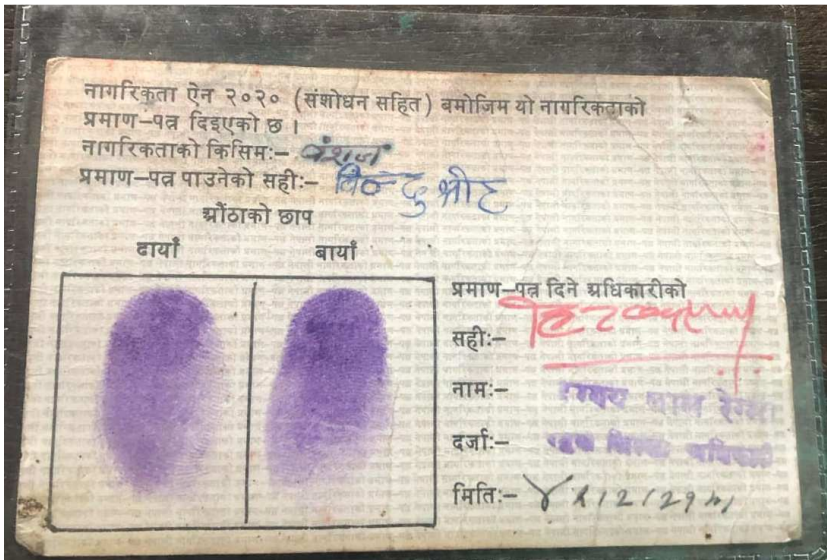 नागरिकता ऐन २०२० (संशोधन सहित) बमोजिम यो नागरिकताको
प्रमाण–पत्र दिइएको छ ।
नागरिकताको किसिमः– वंशज
प्रमाण–पत्र पाउनेको सहीः– विन्दु भाट
औंठाको छाप
दायाँ बायाँ
प्रमाण–पत्र दिने अधिकारीको
सहीः–
नामः–
दर्जाः–
मितिः–